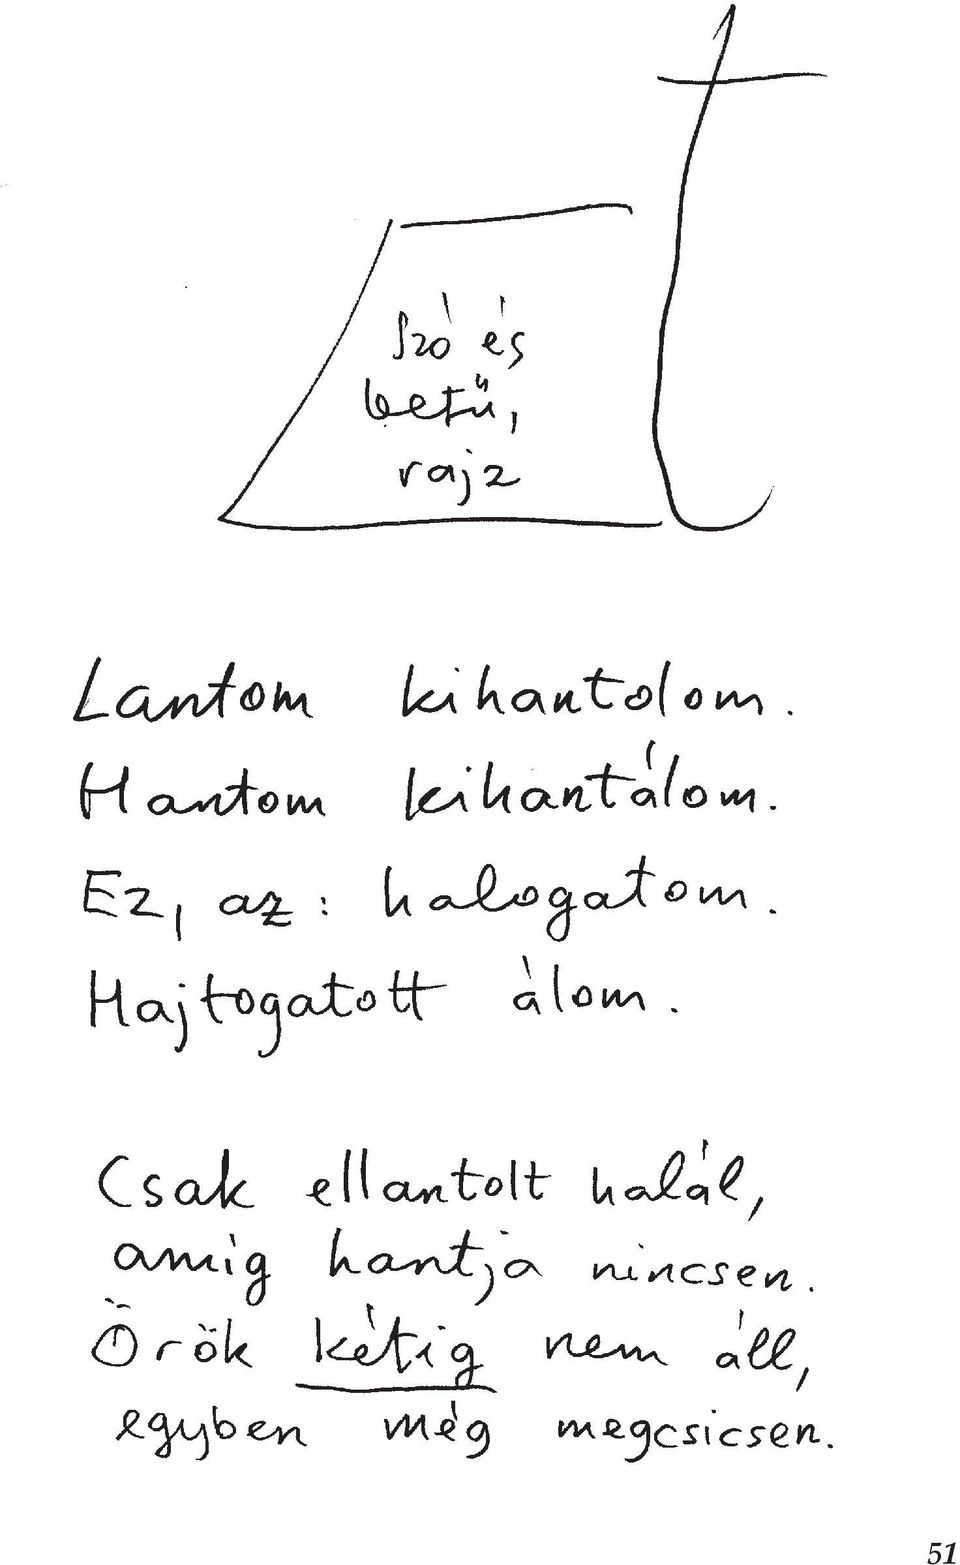 Szó és
betű,
rajz
Lantom kihantolom.
Hantom kihantálom.
Ez, az: halogatom.
Hajtogatott álom.
Csak ellantolt halál,
amig hantja nincsen.
Örök kétig nem áll,
egyben még megcsicsen.
51